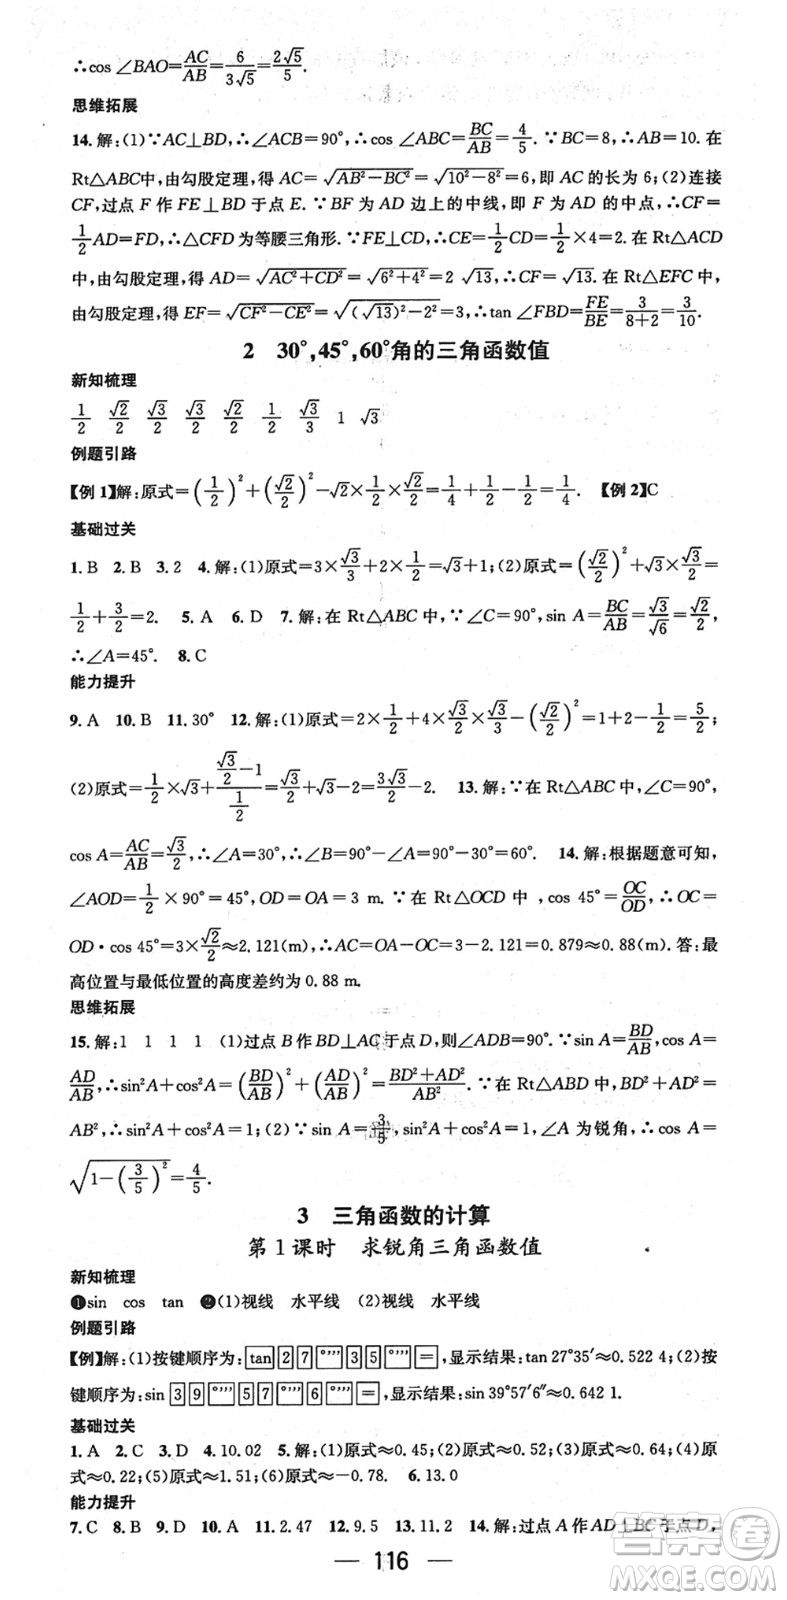 ∴cos ∠BAO=AC/AB=6/(3√5)=2√5/5.
思维拓展
14.解:(1)∵AC⊥BD,∴∠ACB=90°,∴cos ∠ABC=BC/AB=4/5.∵BC=8,∴AB=10.在
Rt△ABC中,由勾股定理,得 AC=√(AB²−BC²)=√(10²−8²)=6,即 AC 的长为 6;(2)连接
CF,过点 F 作 FE⊥BD 于点 E.∵BF 为 AD 边上的中线,即 F 为 AD 的中点,∴CF=
1/2AD=FD,∴△CFD 为等腰三角形.∵FE⊥CD,∴CE=1/2CD=1/2×4=2.在 Rt△ACD
中,由勾股定理,得 AD=√(AC²+CD²)=√(6²+4²)=2 √13,∴CF=√13.在 Rt△EFC 中,
由勾股定理,得 EF=√(CF²−CE²)=√((√13)²−2²)=3,∴tan ∠FBD=FE/BE=3/(8+2)=3/10.
2 30°,45°,60°角的三角函数值
新知梳理
1/2 √2/2 √3/2 √3/2 √2/2 1/2 √3/3 1 √3
例题引路
【例1】解:原式=(1/2)²+(√2/2)²−√2×1/2×√2/2=1/4+1/2−1/2=1/4. 【例2】C
基础过关
1.B 2.B 3.2 4.解:(1)原式=3×√3/3+2×1/2=√3+1;(2)原式=(√2/2)²+√3×√3/2=
1/2+3/2=2. 5.A 6.D 7.解:在 Rt△ABC 中,∵∠C=90°,sin A=BC/AB=√3/√6=√2/2,
∴∠A=45°. 8.C
能力提升
9.A 10.B 11.30° 12.解:(1)原式=2×1/2+4×√3/2×√3/3−(√2/2)²=1+2−1/2=5/2;
(2)原式=1/2×√3+(√3/2−1)/(1/2)=√3/2+√3−2=3√3/2−2. 13.解:∵在 Rt△ABC 中,∠C=90°,
cos A=AC/AB=√3/2,∴∠A=30°,∴∠B=90°−∠A=90°−30°=60°. 14.解:根据题意可知,
∠AOD=1/2×90°=45°,OD=OA=3 m.∵在 Rt△OCD 中,cos 45°=OC/OD,∴OC=
OD·cos 45°=3×√2/2≈2.121(m),∴AC=OA−OC=3−2.121=0.879≈0.88(m).答:最
高位置与最低位置的高度差约为 0.88 m.
思维拓展
15.解:1 1 1 1 (1)过点 B 作 BD⊥AC 于点 D,则∠ADB=90°.∵sin A=BD/AB,cos A=
AD/AB,∴sin²A+cos²A=(BD/AB)²+(AD/AB)²=(BD²+AD²)/AB².∵在 Rt△ABD 中,BD²+AD²=
AB²,∴sin²A+cos²A=1;(2)∵sin A=3/5,sin²A+cos²A=1,∠A 为锐角,∴cos A=
√(1−(3/5)²)=4/5.
3 三角函数的计算
第1课时 求锐角三角函数值
新知梳理
❶sin cos tan ❷(1)视线 水平线 (2)视线 水平线
例题引路
【例】解:(1)按键顺序为:[tan][2][7][°′″][3][5][°′″][=],显示结果:tan 27°35′≈0.522 4;(2)按
键顺序为:sin[3][9][°′″][5][7][°′″][6][°′″][=],显示结果:sin 39°57′6″≈0.642 1.
基础过关
1.A 2.C 3.D 4.10.02 5.解:(1)原式≈0.45;(2)原式≈0.52;(3)原式≈0.64;(4)原
式≈0.22;(5)原式≈1.51;(6)原式≈−0.78. 6.13.0
能力提升
7.C 8.B 9.D 10.A 11.2.47 12.9.5 13.11.2 14.解:过点 A 作 AD⊥BC 于点 D,
— 116 —
答案圈
MXQE.COM